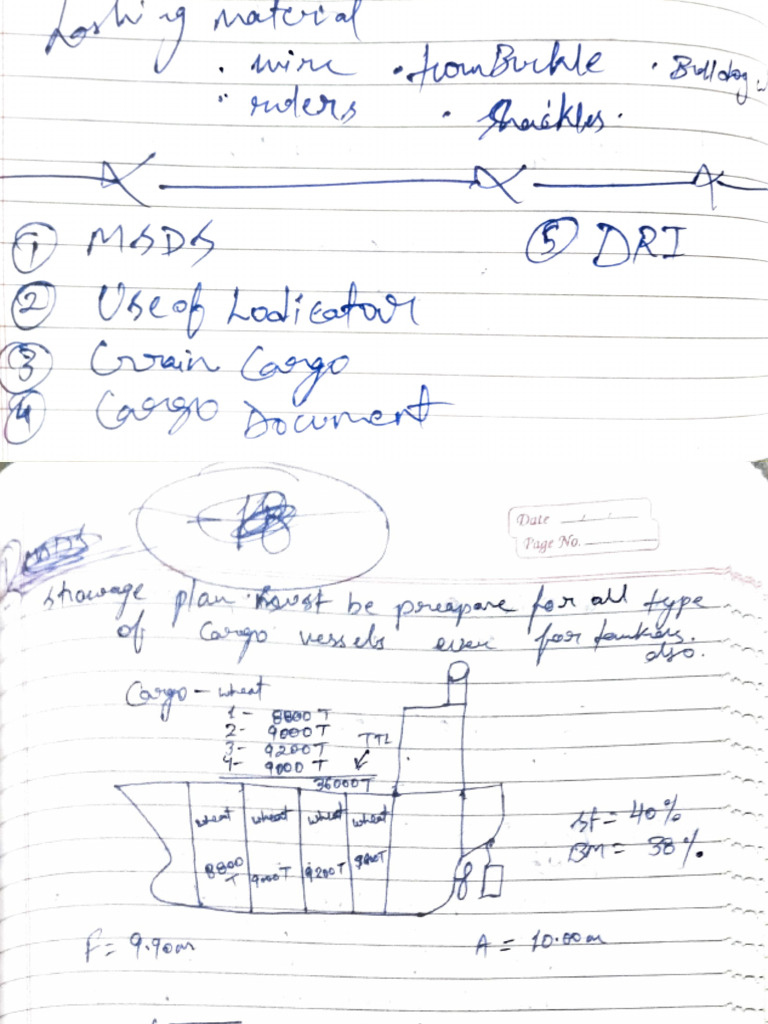 Lashing material
· wire · turnBuckle · Bulldog
·· riders · Shackles.
① MSDS ⑤ DRI
② Use of Lodicatour
③ Grain Cargo
④ Cargo Document
Date
Page No.
MSDS
stowage plan must be preapare for all type
of Cargo vessels even for tankers.
also.
Cargo - wheat
1- 8800T
2- 9000T
3- 9200T
4- 9000T
TTL
36000T
wheat wheat wheat wheat
8800 T 9000T 9200T 9000T
SF = 40%
BM = 38%.
F = 9.90m A = 10.00m